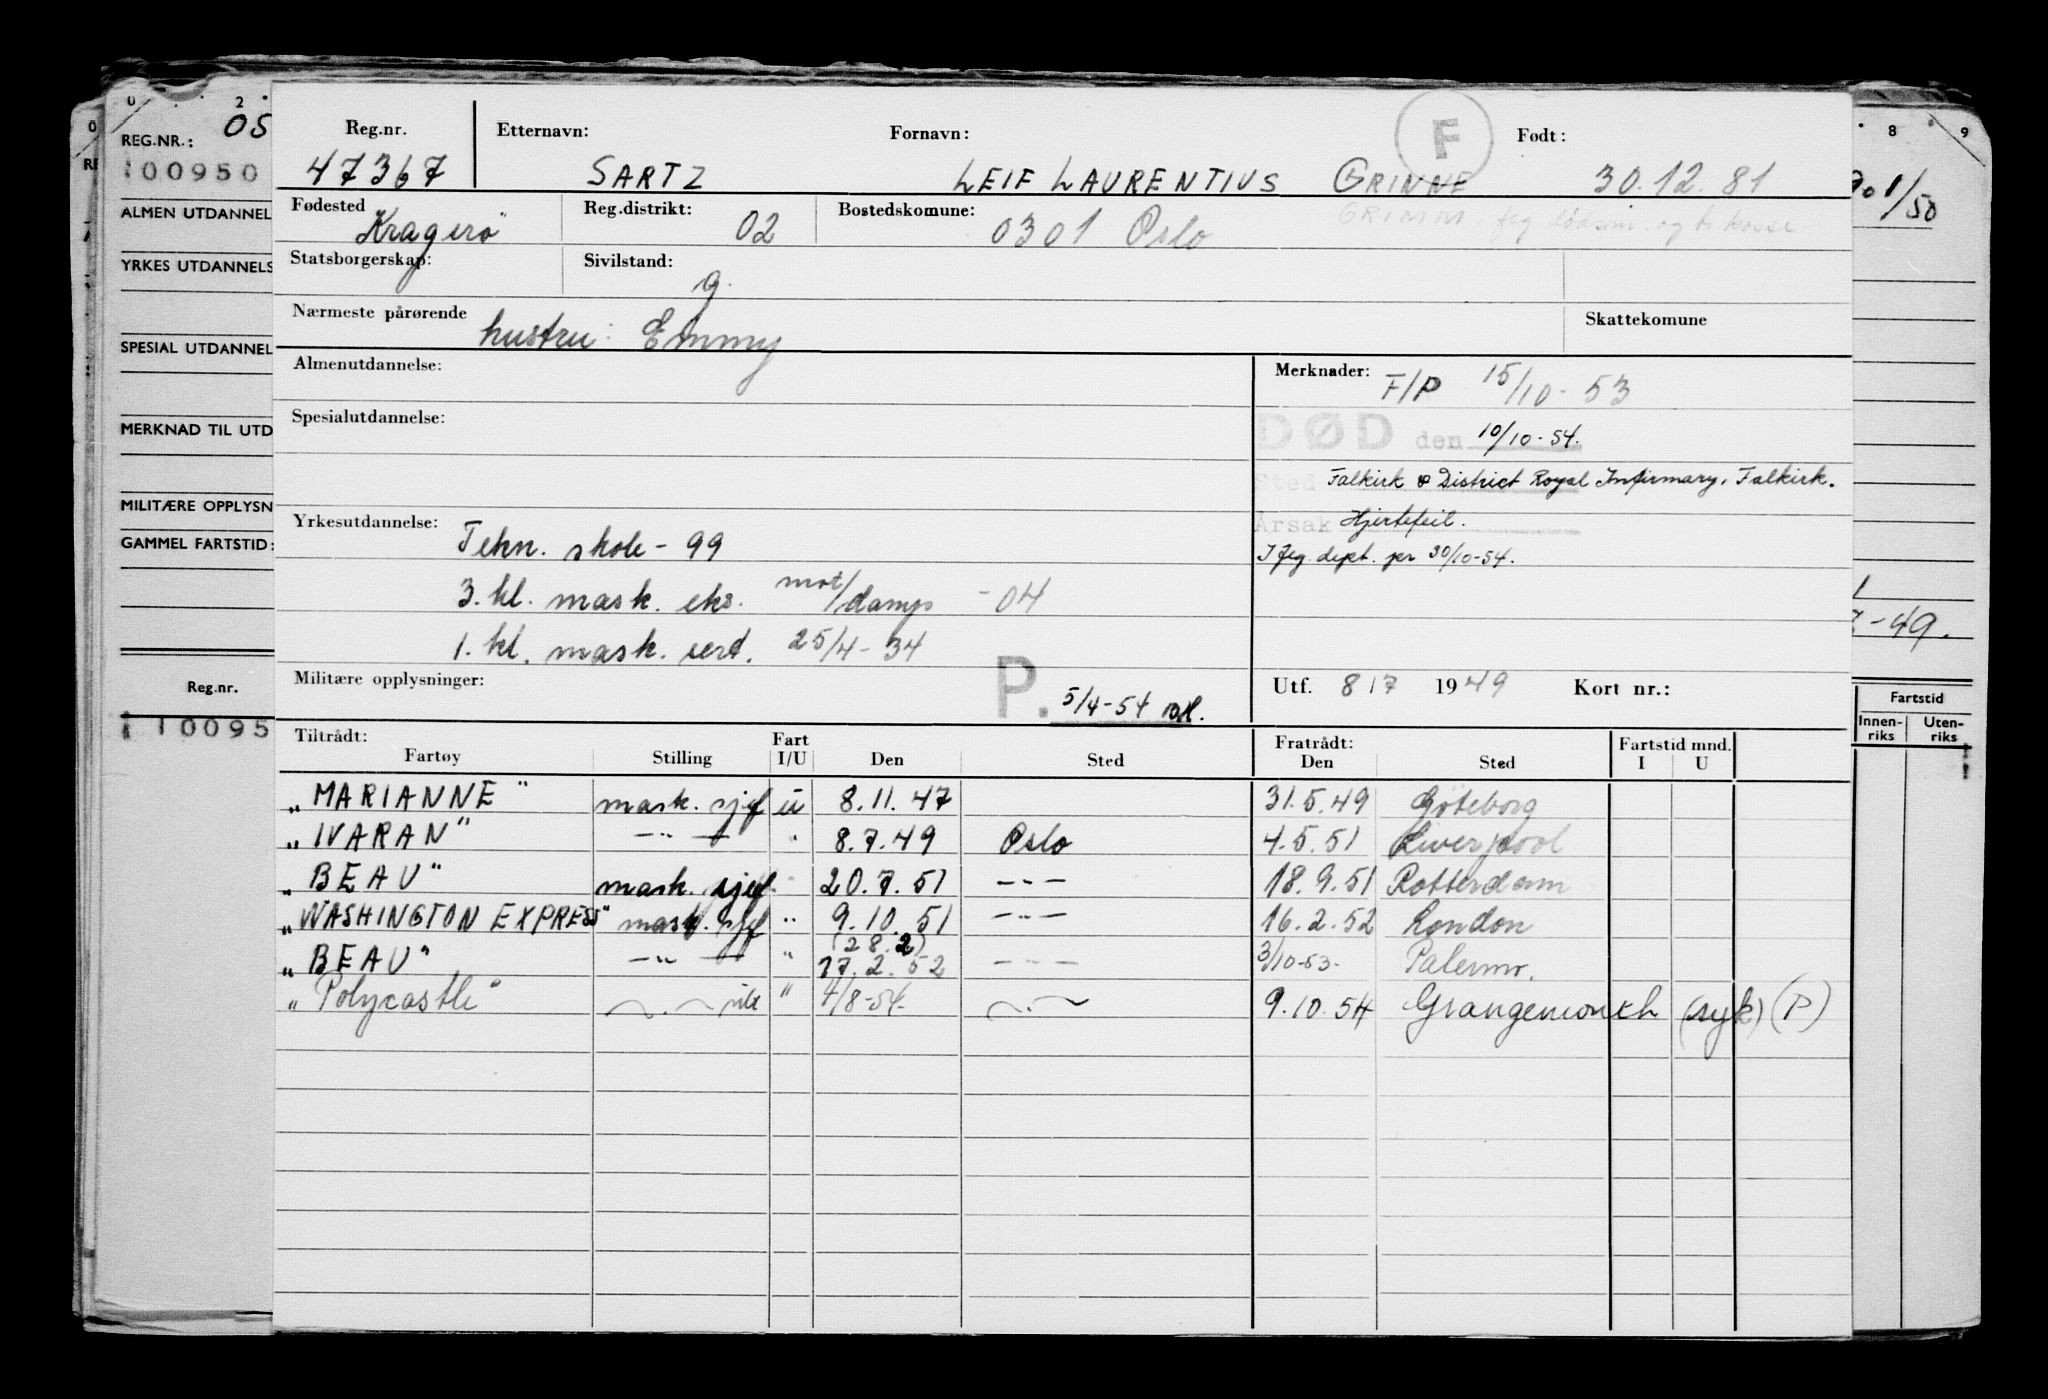 0 2 8 9
REG.NR.: 05
100950
ALMEN UTDANNEL
YRKES UTDANNELS
SPESIAL UTDANNEL
MERKNAD TIL UTD
MILITÆRE OPPLYSN
GAMMEL FARTSTID:
Reg.nr.
10095
1/50
-49.
Fartstid
Innen-riks Uten-riks
Reg.nr. Etternavn: Fornavn: F Født:
47367 SARTZ LEIF LAURENTIUS GRINNE 30.12.81
Fødested Reg.distrikt: Bostedskomune: GRIMM
"Kragerö" 02 0301 Oslo
Statsborgerskap: Sivilstand: g.
Nærmeste pårørende Skattekomune
hustru: Emmy
Almenutdannelse: Merknader: F/P 15/10-53
Spesialutdannelse: DØD den 10/10-54.
Sted Falkirk & District Royal Infirmary, Falkirk.
Yrkesutdannelse: Årsak Hjertefeil.
Tekn. skole - 99 I flg. dept. per 30/10-54.
3. kl. mask. eks. mot/damp -04
1. kl. mask. sert. 25/4-34
Militære opplysninger: P. 5/4-54 Utf. 8/7 1949 Kort nr.:
Tiltrådt: Fart Fratrådt: Fartstid mnd.
Fartøy Stilling I/U Den Sted Den Sted I U
"MARIANNE" mask. sjef u 8.11.47 31.5.49 Göteborg
"IVARAN" —"— " 8.7.49 Oslo 4.5.51 Liverpool
"BEAU" mask. sjef 20.7.51 —"— 18.9.51 Rotterdam
"WASHINGTON EXPRESS" mask. sjef " 9.10.51 —"— 16.2.52 London
(28.2)
"BEAU" —"— " 17.2.52 —"— 3/10-53. Palermo.
"Polycastle" —"— " 4/8-54. —"— 9.10.54 Grangemouth (syk) (P)